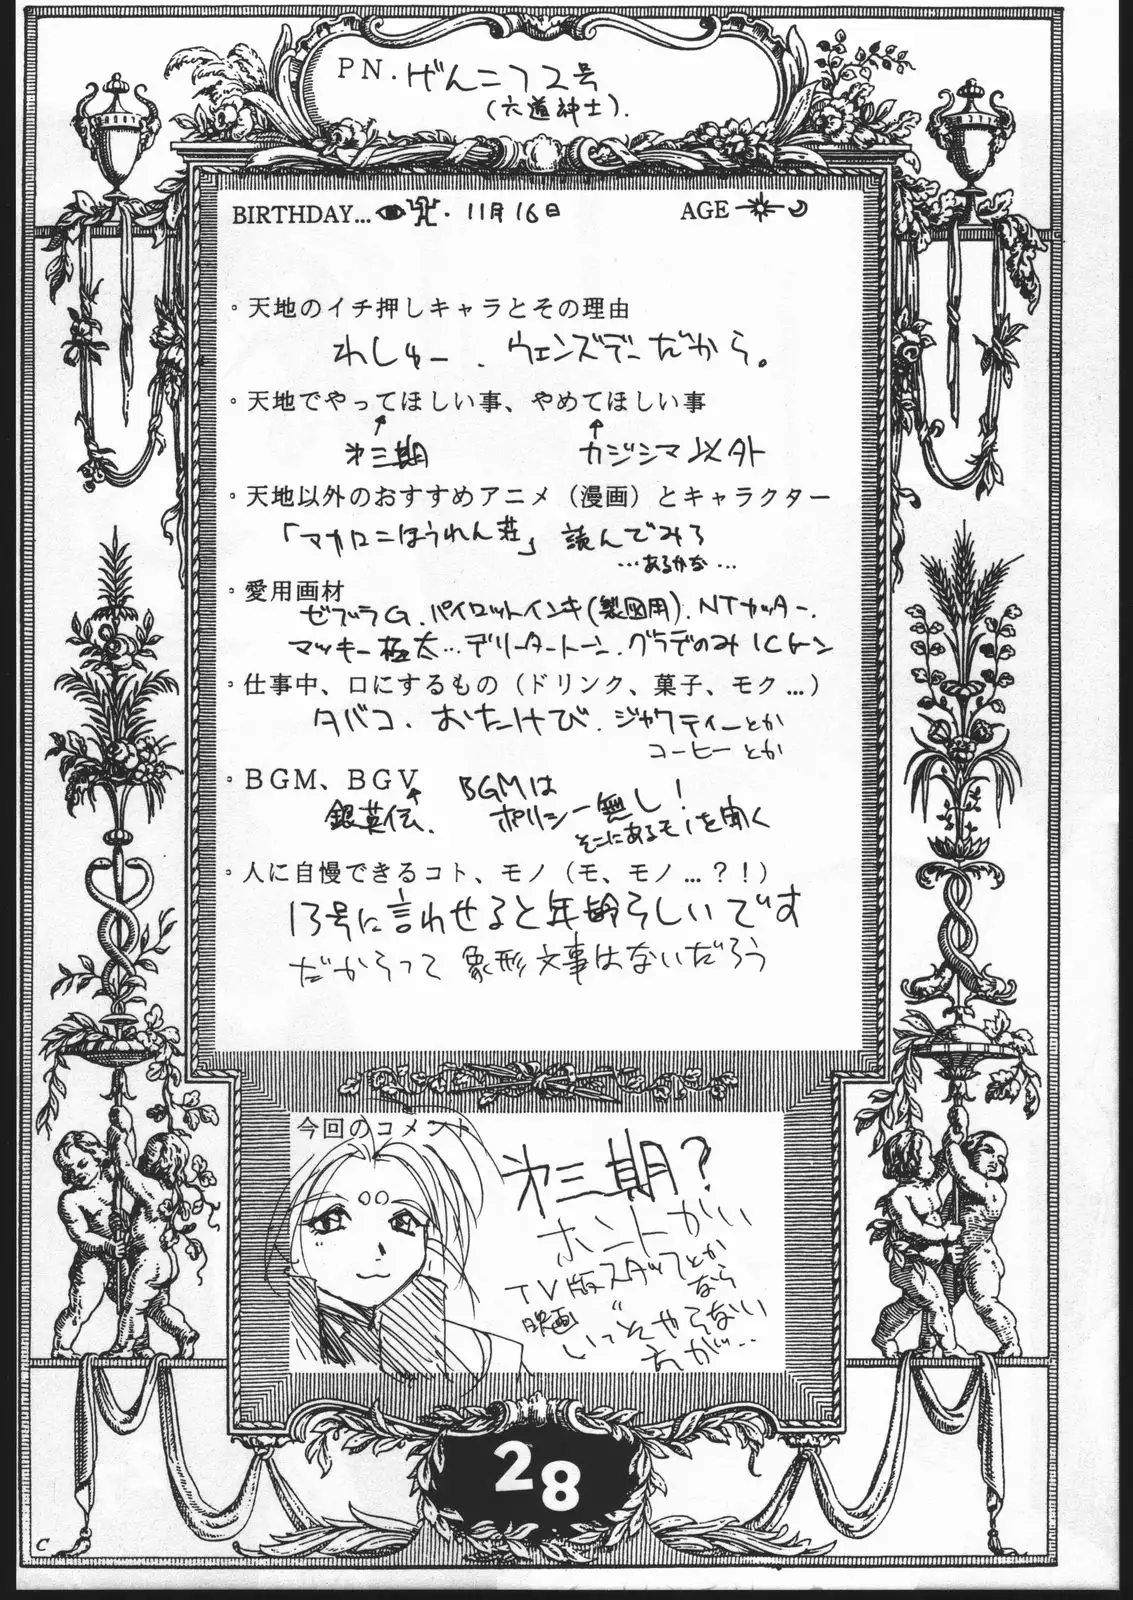 PN. げんこフ2号
(六道紳士).
BIRTHDAY... 11月16日 AGE
・天地のイチ押しキャラとその理由
わしゅー、ウェンズデーだから。
・天地でやってほしい事、やめてほしい事
才三期 カジシマ以外
・天地以外のおすすめアニメ（漫画）とキャラクター
「マカロニほうれん荘」読んでみろ
…あるかな…
・愛用画材
ゼブラG、パイロットインキ(製図用)、NTカッター、
マッキー極太…デリータートーン、グラデのみICトーン
・仕事中、口にするもの（ドリンク、菓子、モク…）
タバコ、おたけび、ジャワティーとか
コーヒーとか
・BGM、BGV BGMは
銀英伝、ポリシー無し!
そこにあるモノを聞く
・人に自慢できるコト、モノ（モ、モノ…？！）
13号に言わせると年齢らしいです
だからって象形文事はないだろう
今回のコメント
才三期?
ホントかい
TV版スタッフとか
映画なら
いいぞやらない
28
C